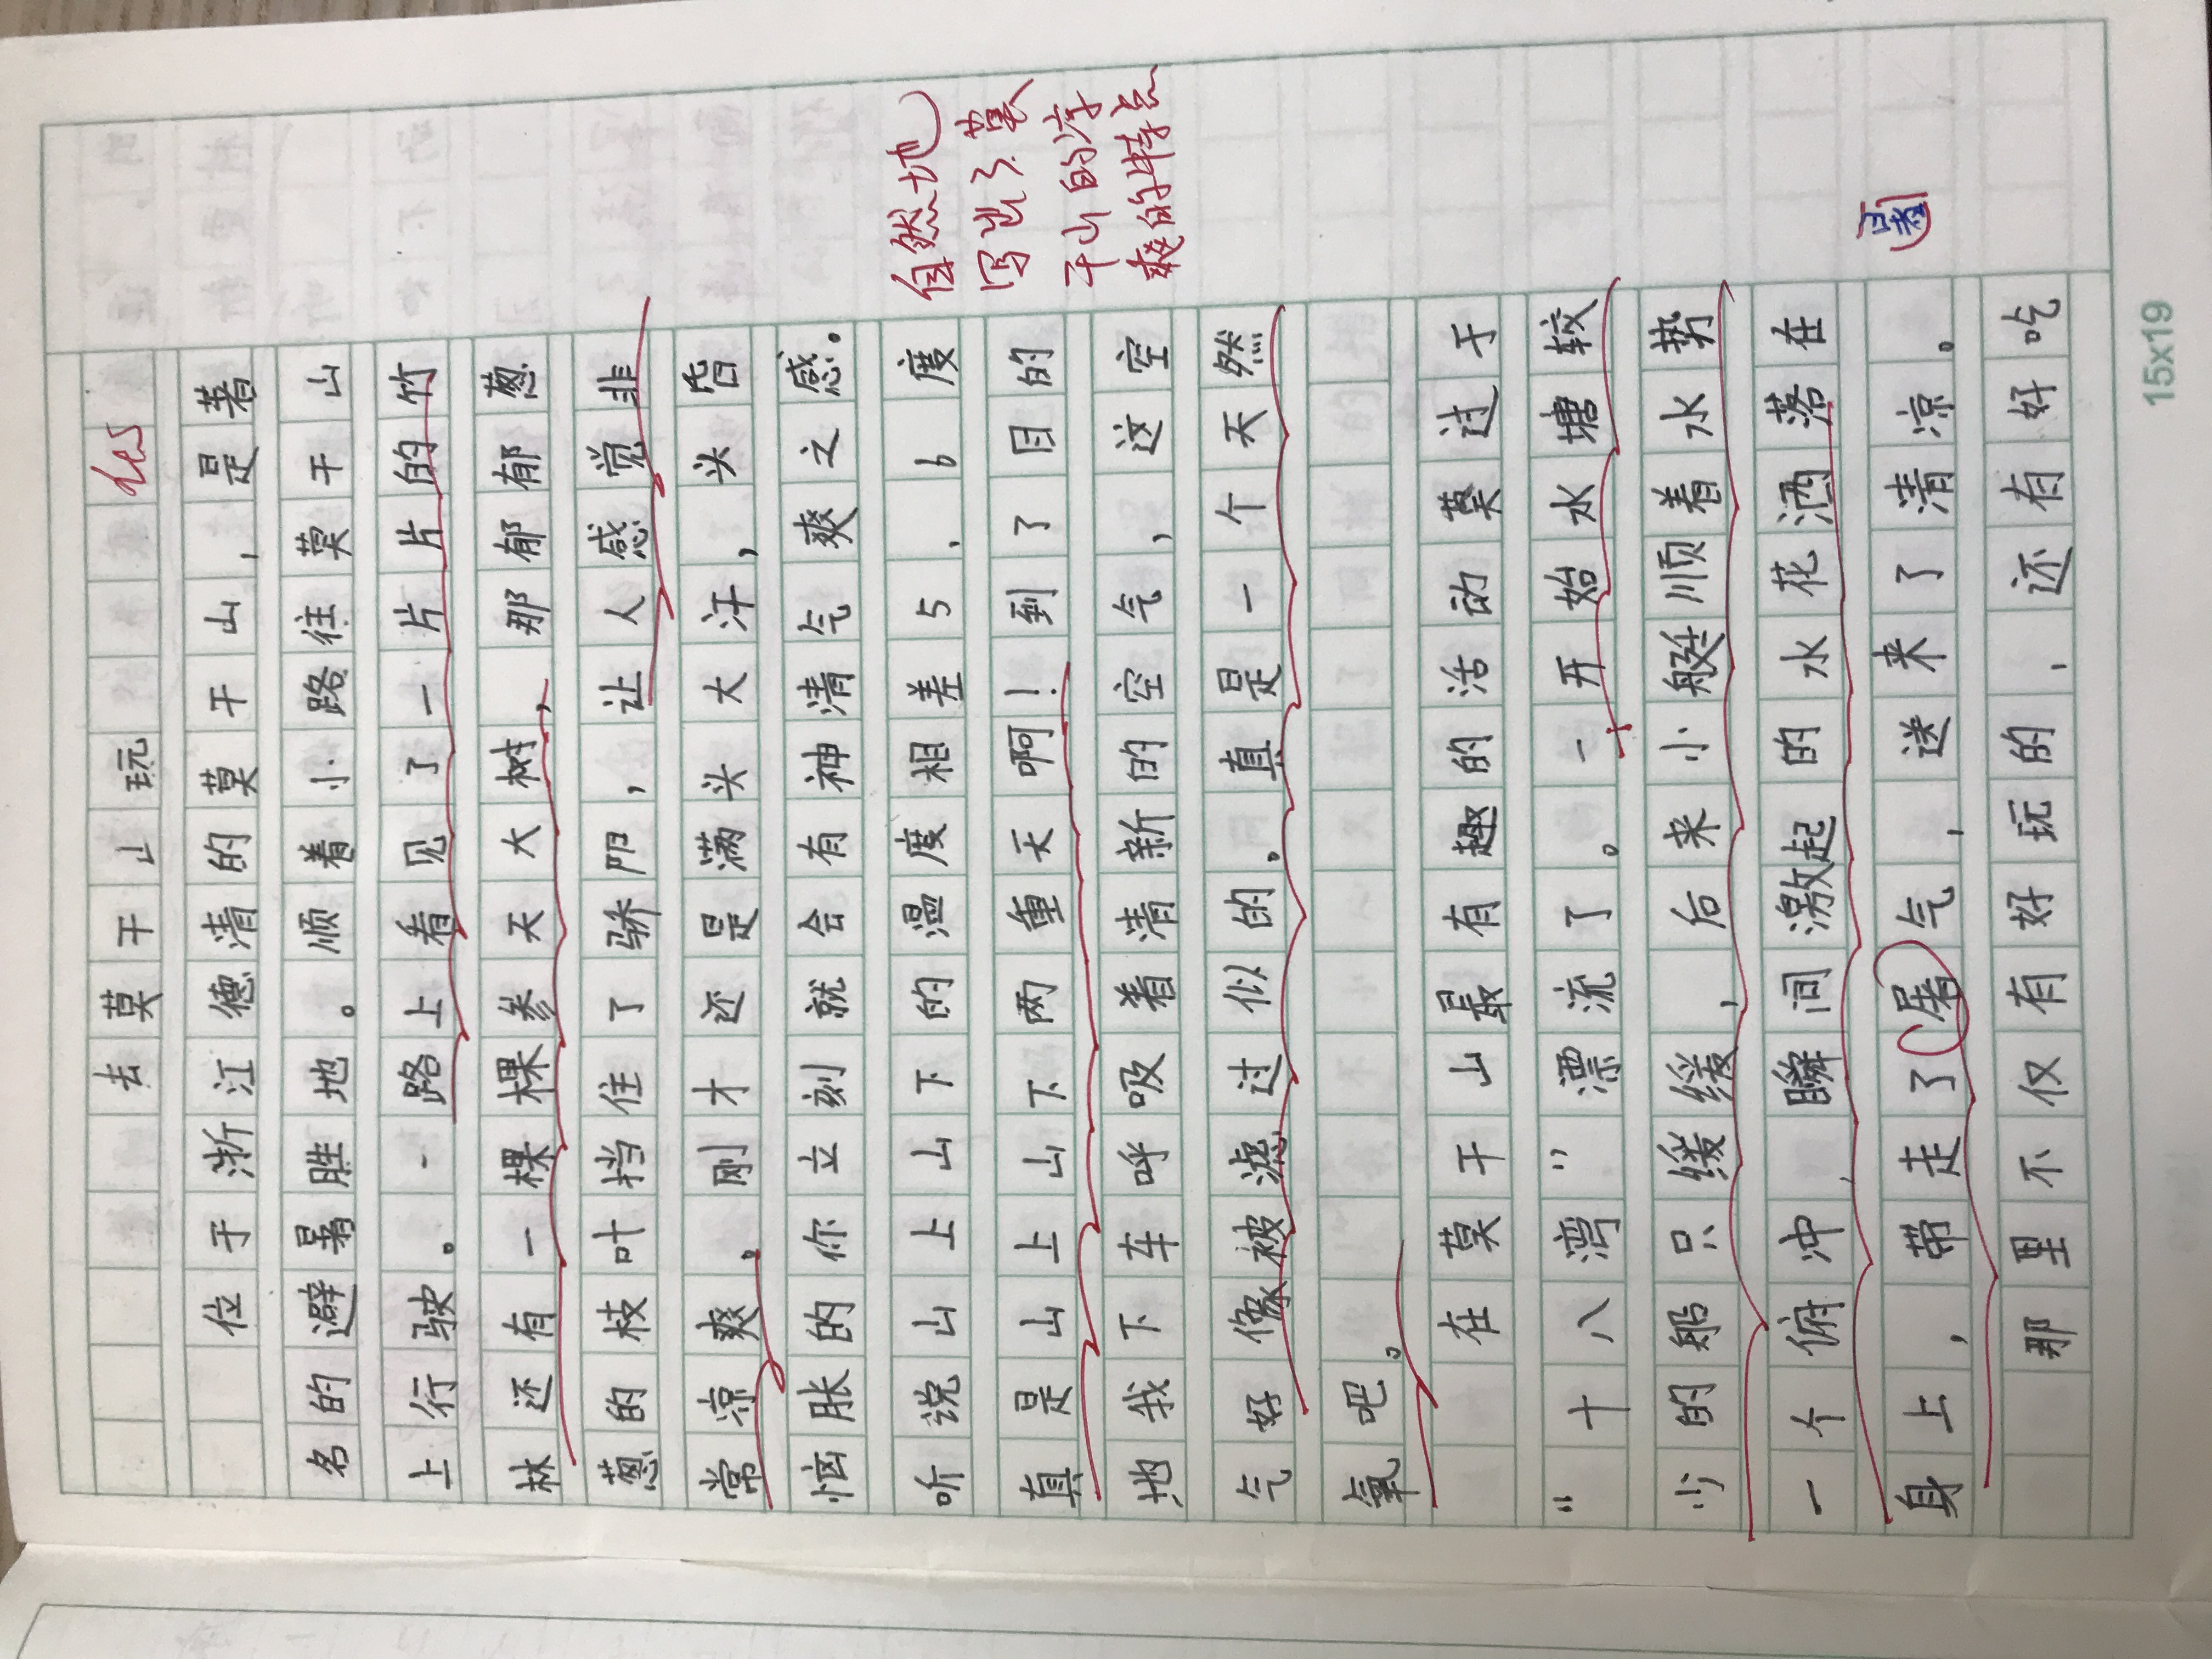 去莫干山玩
位于浙江德清的莫干山，是著
名的避暑胜地。顺着小路往莫干山
上行驶。一路上看见了一片片的竹
林还有一棵棵参天大树，那郁郁葱
葱的枝叶挡住了骄阳，让人感觉非
常凉爽。刚才还是满头大汗，头昏
恼胀的你立刻就会有神清气爽之感。
听说山上山下的温度相差5、6度
真是山上山下两重天啊！到了目的
地我下车呼吸着清新的空气，这空
气好像被滤过似的。真是一个天然
氧吧。
在莫干山最有趣的活动莫过于
“十八湾”漂流了。一开始水塘较
少的船只缓缓，后来小艇顺着水势
一个俯冲，瞬间激起的水花洒落在
身上，带走了屠气，送来了清凉。
那里不仅有好玩的，还有好吃
自然地
写出了莫
干山的凉
爽的特点
暑
15x19